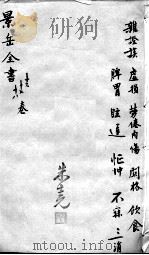 雜證謨 虛損 勞倦內傷 關格 飲食
脾胃 眩運 怔忡 不寐 三消
朱
景岳全書 卷